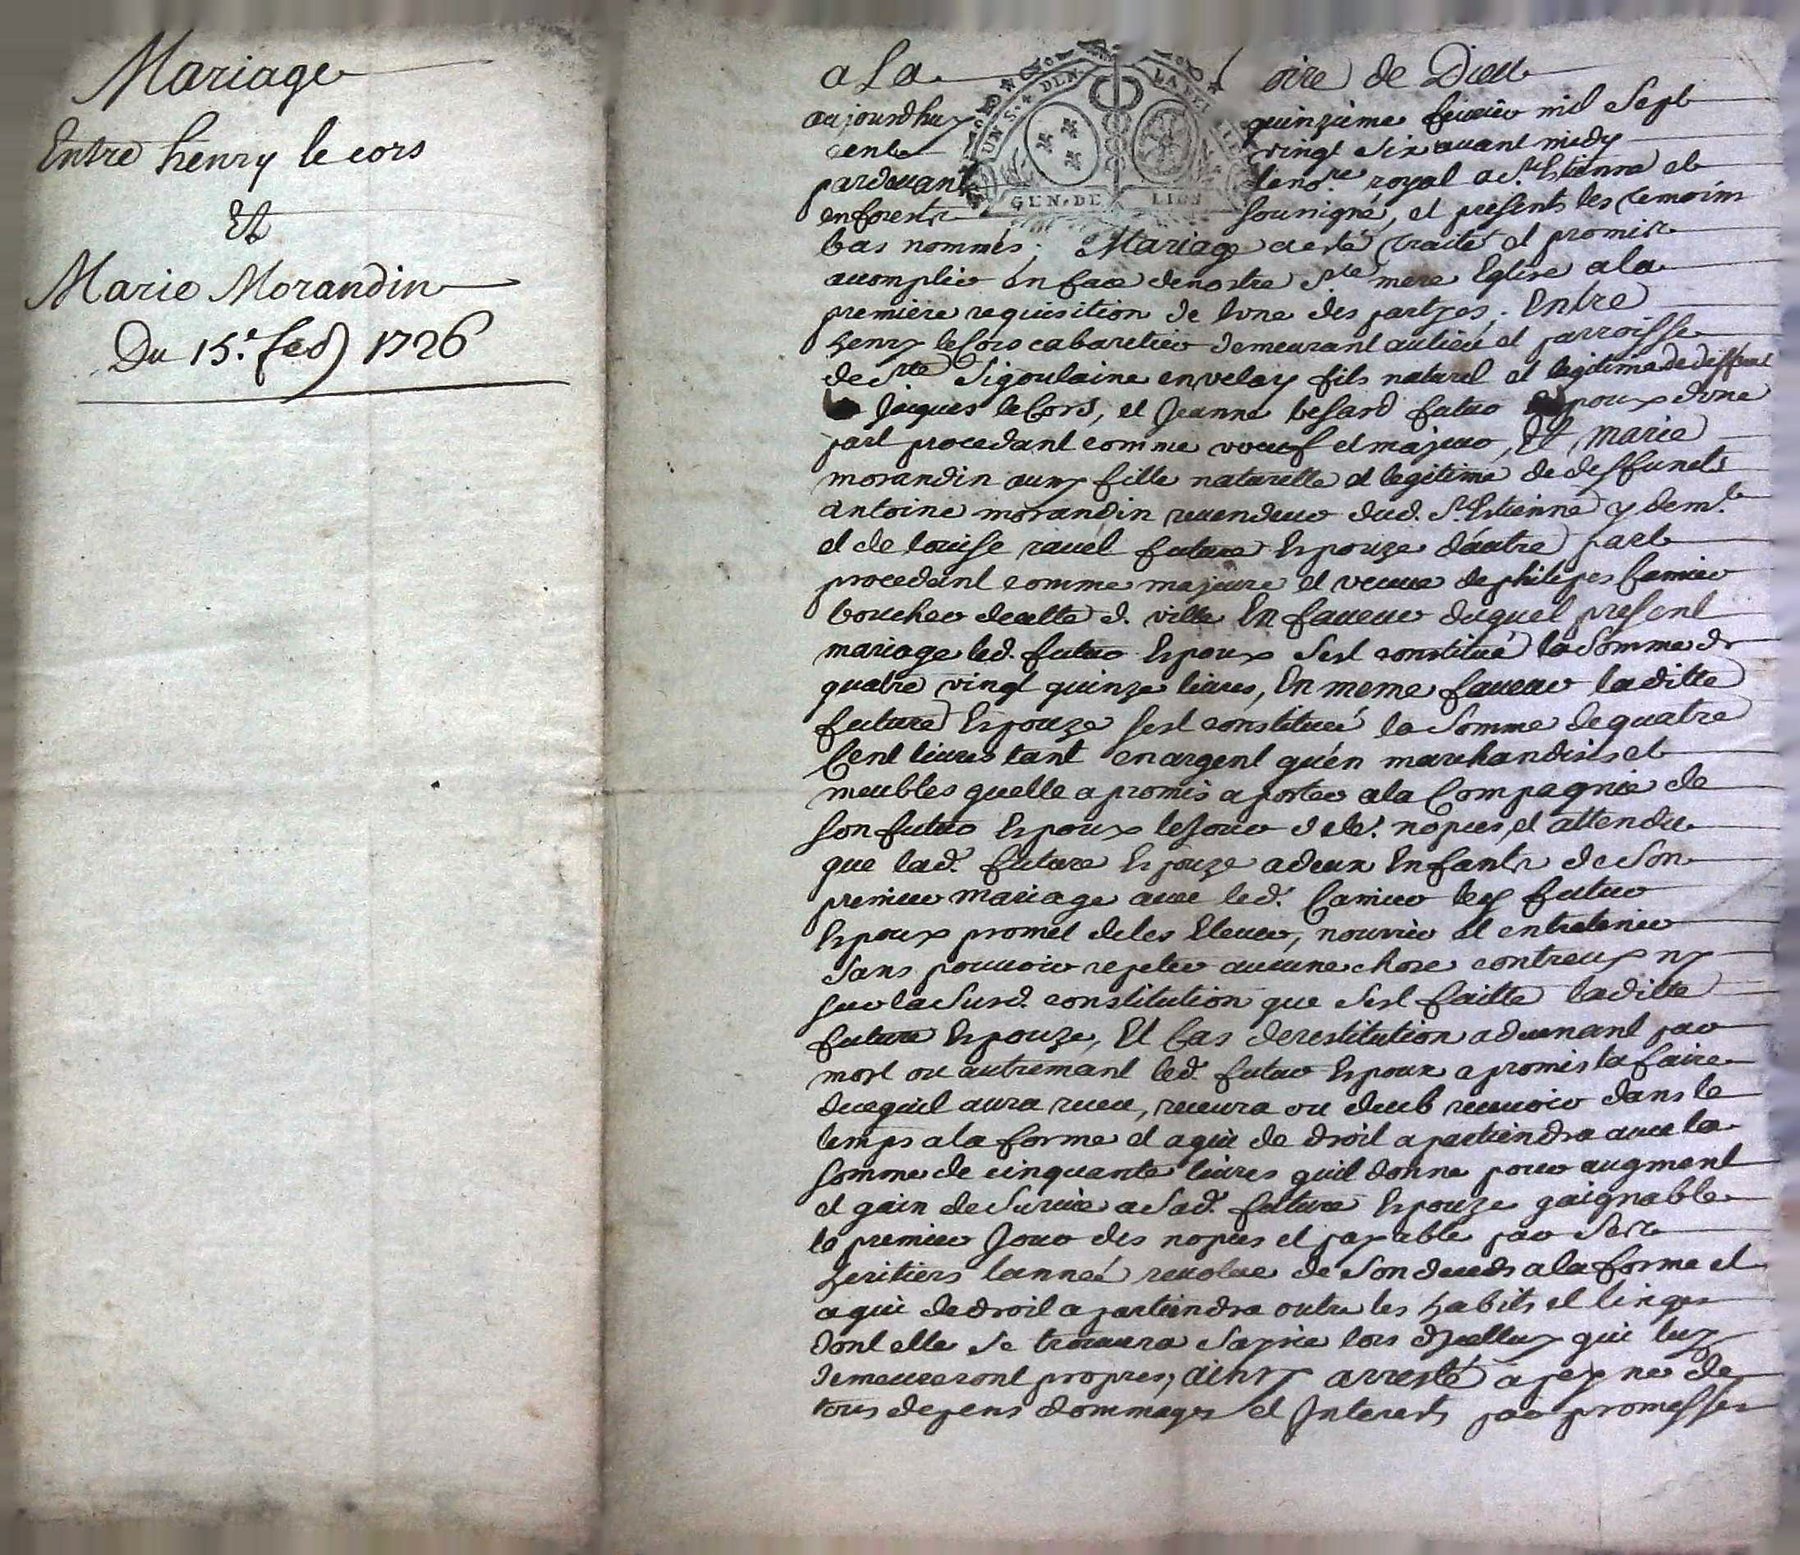 Mariage
Entre henry le cors
Et
Marie Morandin
Du 15.e feb 1726
a La oire de Dieu
aujourdhuy quinzieme fevrier mil Sept
cent vingt Six avant midy
pardevant le no.re royal a S.t Etienne et
en forestz Soussigné, et presents les temoins
bas nommés. Mariage a esté traité et promis
accomplir en face de nostre S.te mere Eglise a la
premiere requisition de lune des partyes. Entre
henry le Cors cabaretier demeurant au lieu et parroisse
de S.te Sigoulaine en velay fils naturel et legitime de deffunt
Jacques le Cors, et Jeanne besard futur Espoux dune
part procedant comme veuf et majeur, Et Marie
morandin aussy fille naturelle et legitime de deffunct
antoine morandin revendeur dud. S.t Estienne y dem.t
et de louise ravel future Espouze d'autre part
procedant comme majeure et veuve de philipes Camier
boucher de cette d. ville En faveur duquel present
mariage led. futur Espoux sest constitué la Somme de
quatre vingt quinze livres, En meme faveur laditte
future Espouze sest constituée la Somme de quatre
Cent livres tant en argent qu'en marchandises et
meubles quelle a promis aporter a la Compagnie de
son futur Espoux le jour de le.s nopces, et attendu
que lad. future Espouze a deux Enfants de Son
premier mariage avec led. Camier led futur
Espoux promet de les Elever, nourrir et entretenir
Sans pouvoir repeter aucune chose contreux ny
sur la Susd. constitution que sest faitte laditte
future Espouze, Et Cas de restitution advenant par
mort ou autremant led. futur Espoux a promis la faire
du cequil aura receu, recevra ou deub recevoir dans le
temps a la forme et a qui de droit apartiendra avec la
somme de cinquante livres quil donne pour augment
et gain de Survie a Sad. future Espouze gaignable
le premier Jour des nopces et payable par Ses
heritiers lanneé revolue de Son deceds a la forme et
a qui de droit apartiendra outre les habits et linges
dont elle se trouvera Saysie lors dyceluy qui luy
demeureront propres, ainsy arresté a peyne de
tous depens dommages et Interests par promesses
GEN. DE LION